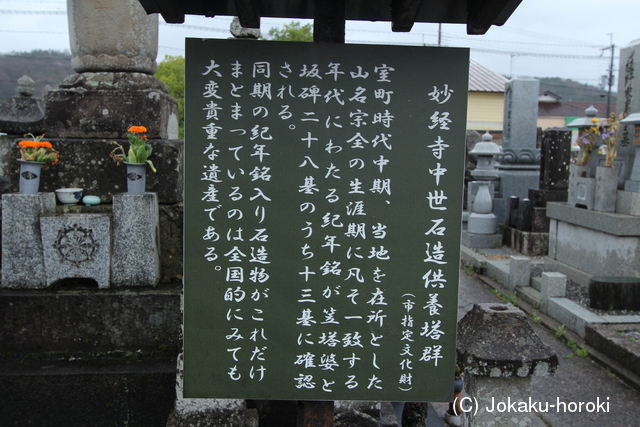 妙経寺中世石造供養塔群
(市指定文化財)
室町時代中期、当地を在所とした
山名宗全の生涯期に凡そ一致する
年代にわたる紀年銘が笠塔婆と
坂碑二十八基のうち十三基に確認
される。
同期の紀年銘入り石造物がこれだけ
まとまっているのは全国的にみても
大変貴重な遺産である。
(C) Jokaku-horoki